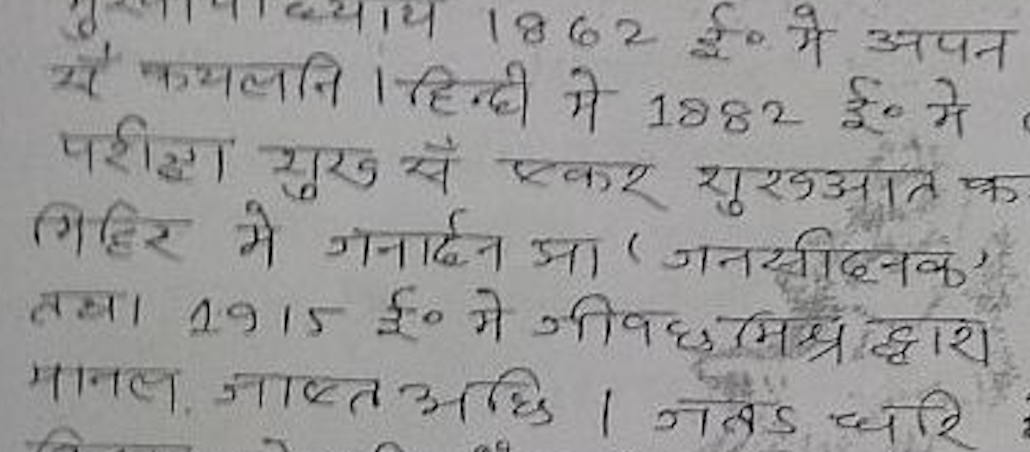 1862 ई० मे अपन
सँ कयलनि । हिन्दी मे 1882 ई० मे
परीक्षा गुरु सँ एकर शुरुआत
मिहिर मे जनार्दन झा ‘जनसीदनक’
तथा 1915 ई० मे जीवछ मिश्र द्वारा
मानल जाइत अछि । जतऽ धरि